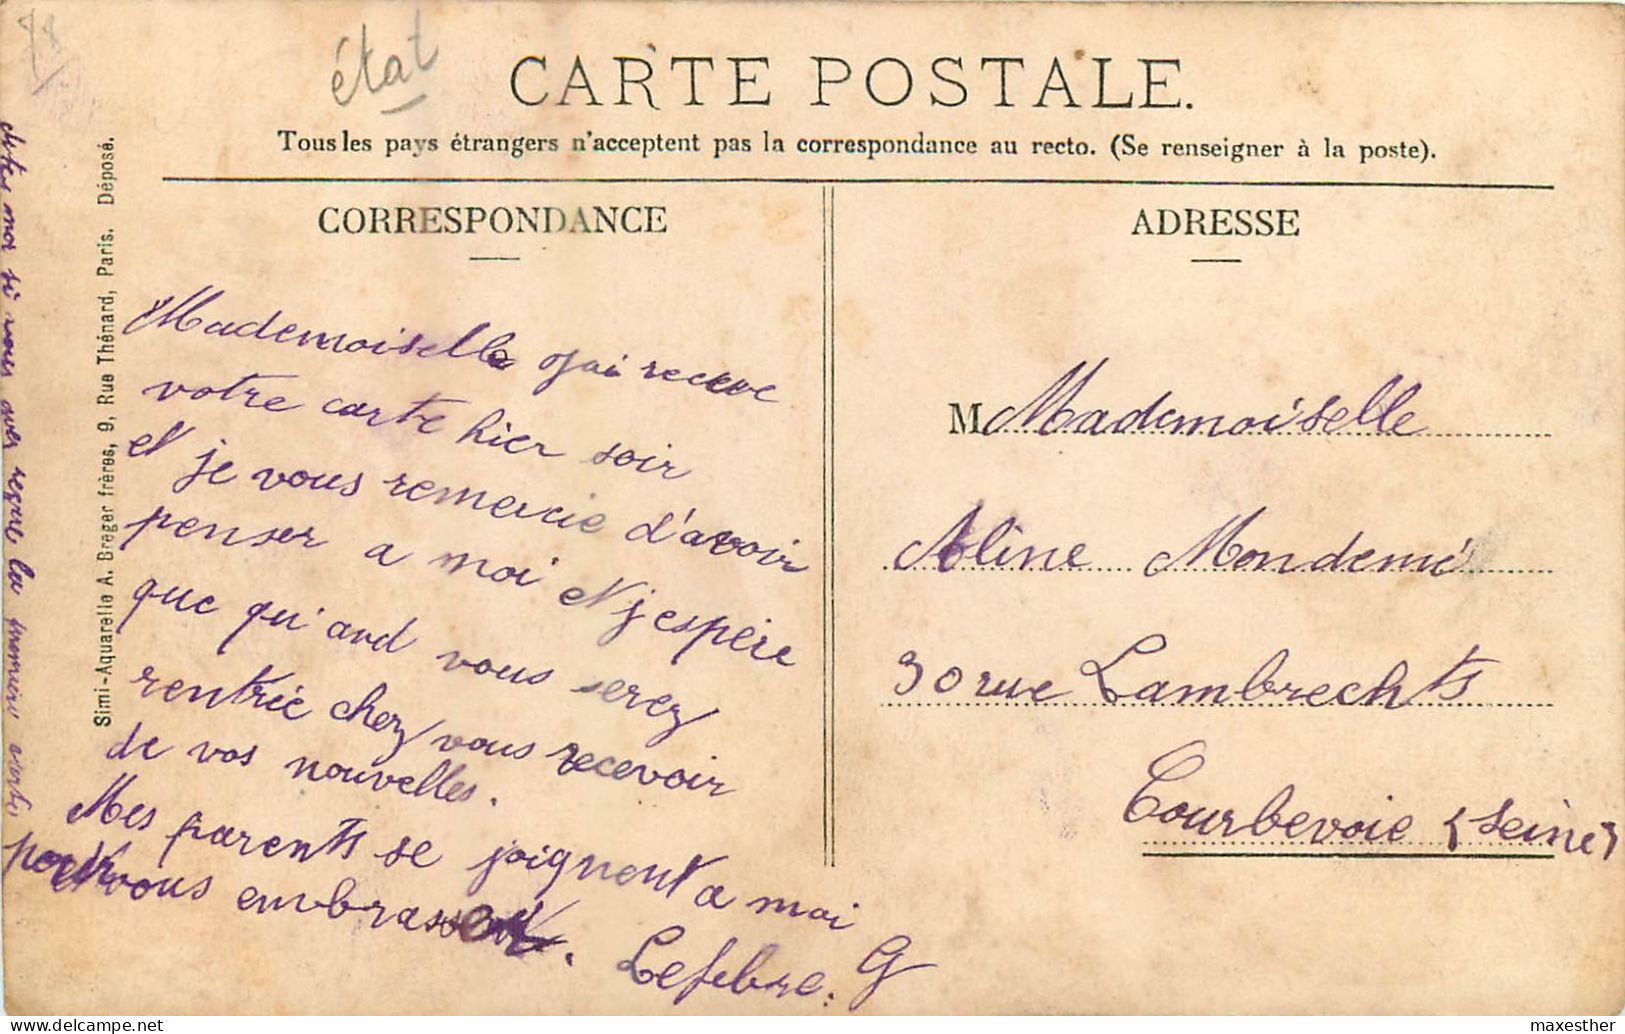 78
état
CARTE POSTALE.
Tous les pays étrangers n'acceptent pas la correspondance au recto. (Se renseigner à la poste).
CORRESPONDANCE
Mademoiselle j'ai recue
votre carte hier soir
et je vous remercie d'avoir
penser a moi et j'espère
que qu'and vous serez
rentrée chez vous recevoir
de vos nouvelles.
Mes parents se joignent a moi
pour vous embrasser.
Lefebre. G
dites moi si vous avez reçue la
ADRESSE
M Mademoiselle
Aline Mondemé
30 rue Lambrechts
Courbevoie (Seine)
Simi-Aquarelle A. Breger frères, 9, Rue Thénard, Paris. Déposé.
maxesther